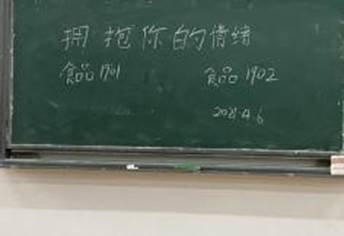 拥抱你的情绪
食品1901 食品1902
2021.4.6